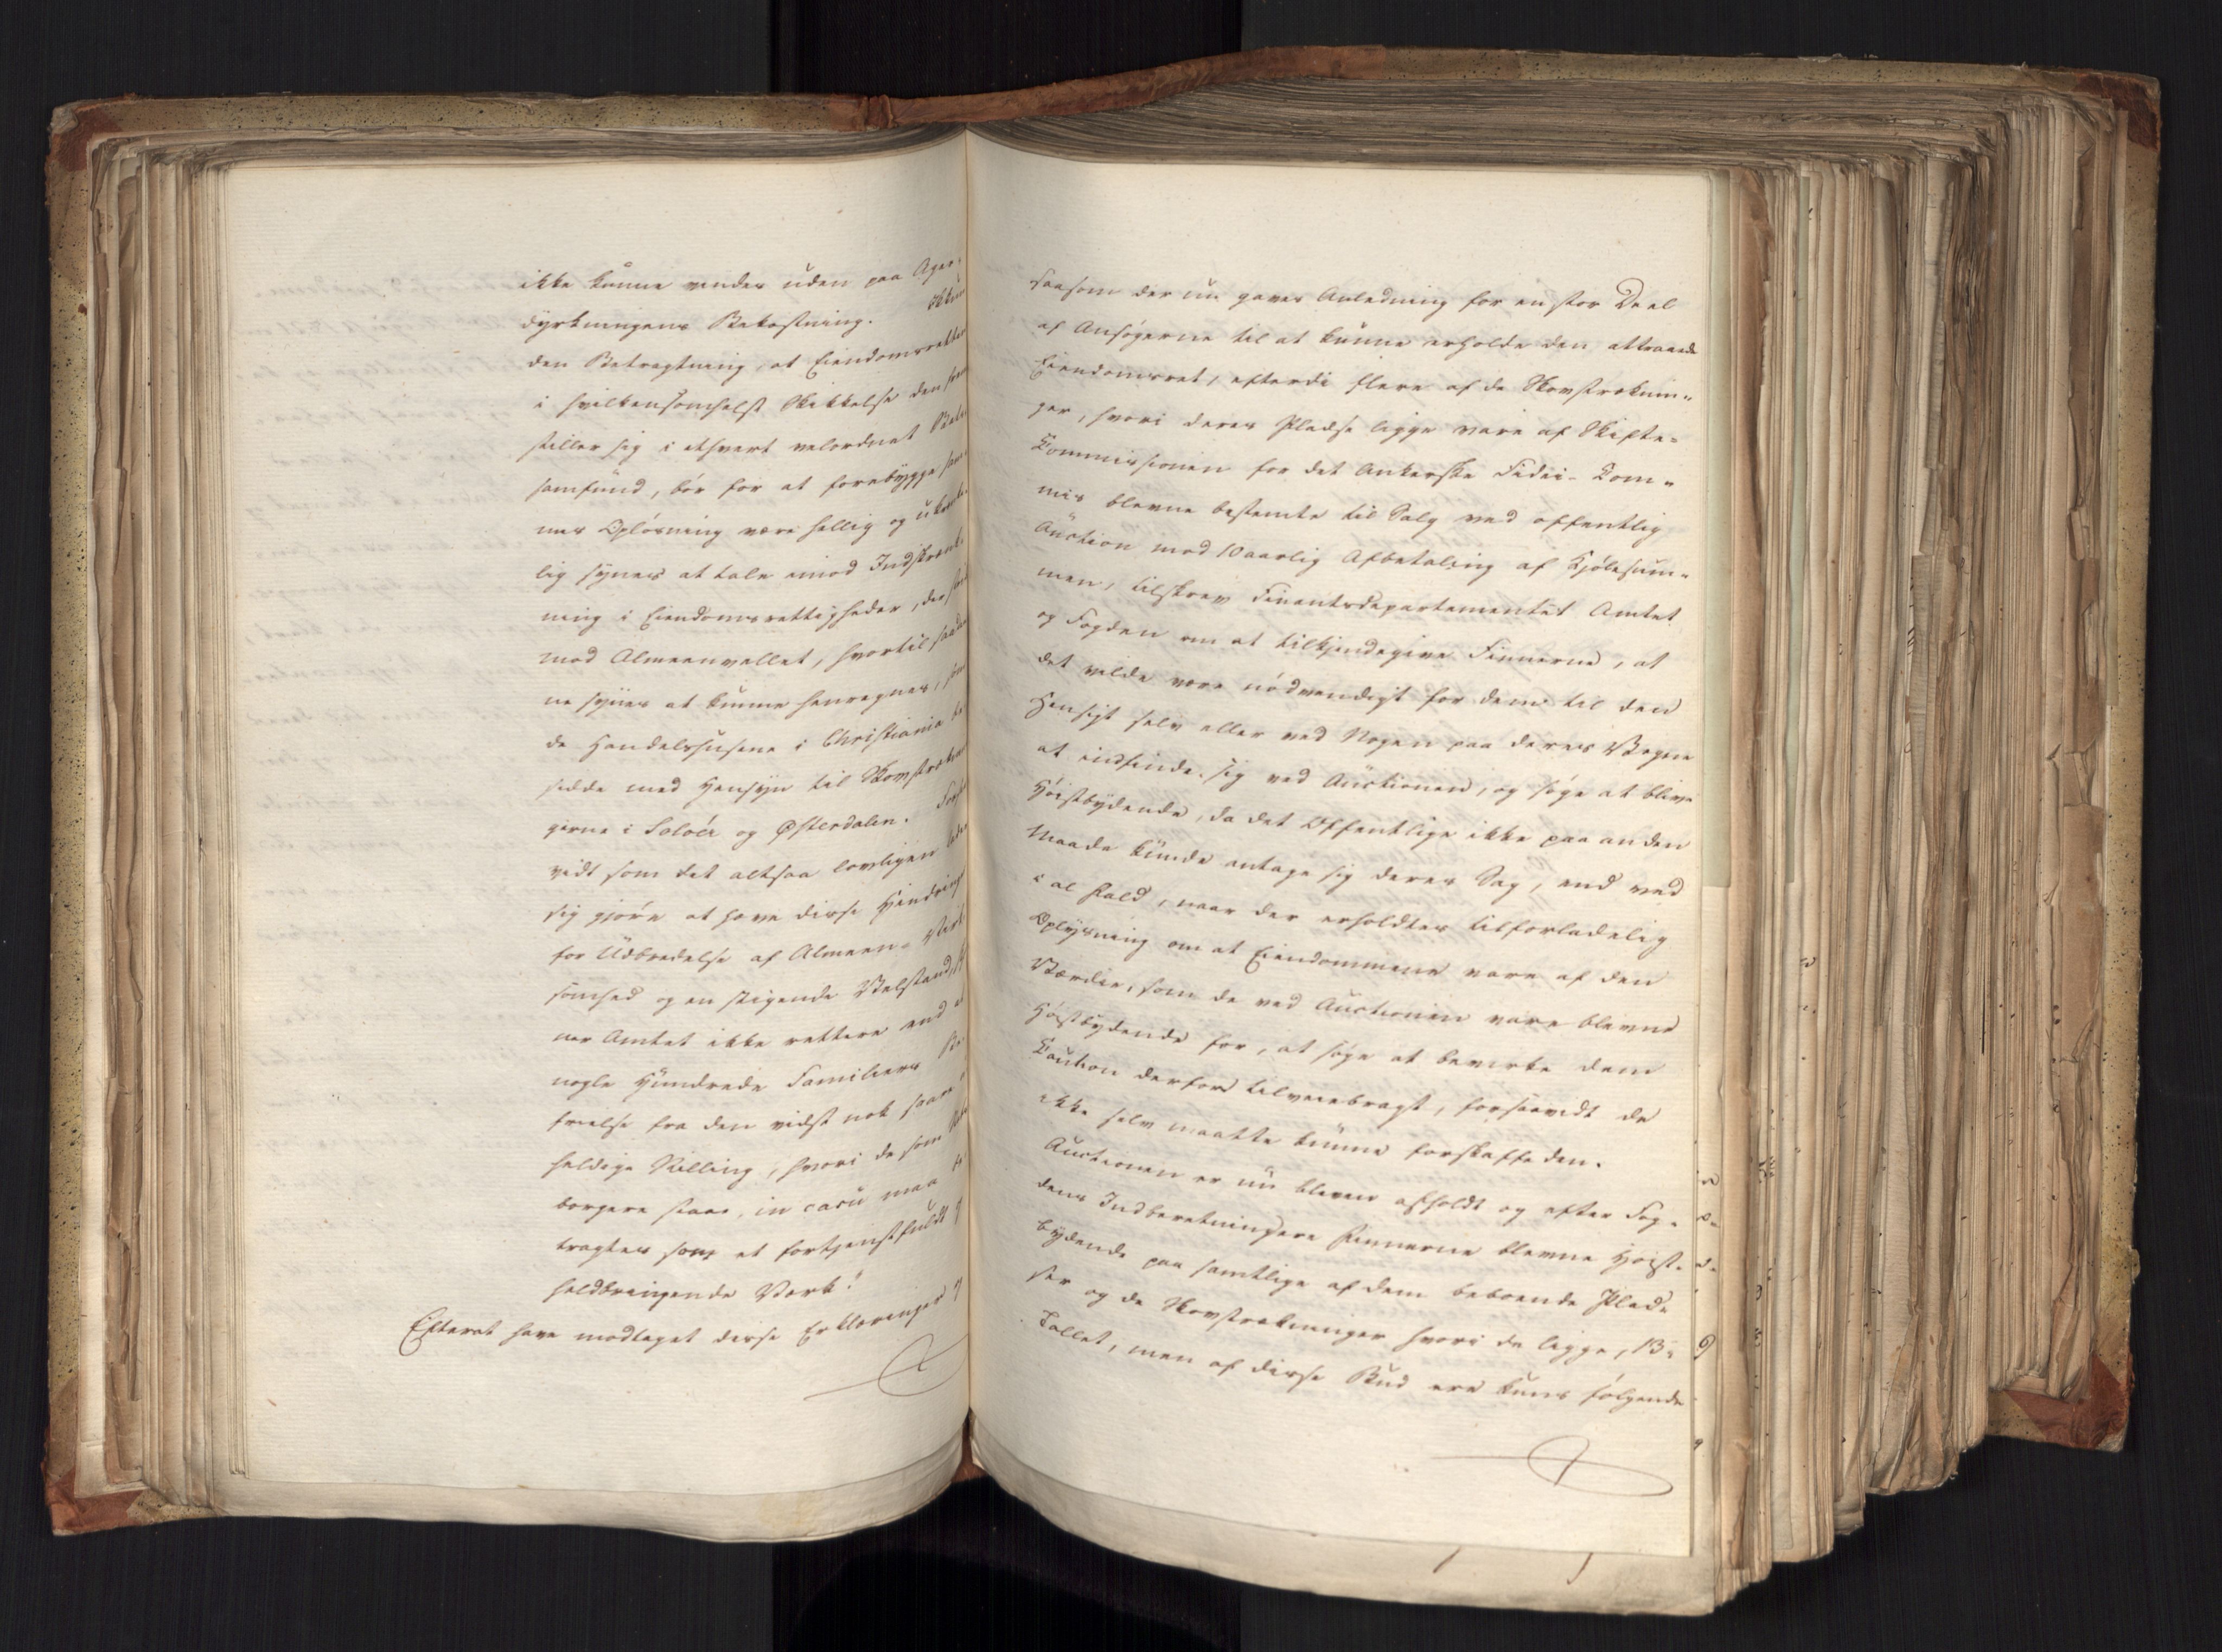 ikke kunne vendes uden paa Ager-
dyrkningens Bekostning.
den Betragtning, at Eiendomsretten
i hvilkensomhelst Skikkelse den frem
stiller sig i ethvert velordnet Stats
samfund, bør for at forebygge sam-
mes Opløsning være hellig og ukrænke-
lig synes at tale imod Indskrænk-
ning i Eiendomsrettigheder, der
mod Almeenvellet, hvortil saada
ne synes at kunne henregnes, som
de Handelshusene i Christiania be
sidde med Hensyn til Skovstrækni
gerne i Soløer og Østerdalen. Forsaa
vidt som det altsaa lovligen lader
sig gjøre at hæve disse Hindringer
for Udbredelse af Almeen- Virk
somhed og en stigende Velstand,
ner Amtet ikke rettere end at
nogle Hundrede Familiers Be
frielse fra den vidst nok saare
heldige Stilling, hvori de som Stats
borgere staae, in casu maa be
tragtes som et fortjenstfuldt
heldbringende Værk!
Efterat have modtaget disse Erklæringer
saasom der nu gaves Anledning for en stor Deel
af Ansøgerne til at kunne erholde den attraaede
Eiendomsret, efterdi flere af de Skovstræknin-
ger, hvori deres Pladse ligge vare af Skifte-
Commissionen for det Ankerske Fidei-Com-
mis blevne bestemte til Salg ved offentlig
Auction med 10aarlig Afbetaling af Kjøbesum-
men, tilskrev Finantsdepartementet Amtet
og Fogden om at tilkjendegive Finnerne, at
det vilde være nødvendigt for dem til den
Hensigt selv eller ved Nogen paa deres Vegne
at indfinde sig ved Auctionen, og søge at blive
Høistbydende, da det Offentlige ikke paa anden
Maade kunde antage sig deres Sag, end ved
i al Fald, naar der erholdtes tilforladelig
Oplysning om at Eiendommene vare af den
Værdie, som de ved Auctionen vare blevne
Høistbydende for, at søge at bevirke dem
Caution derfor tilveiebragt, forsaavidt de
ikke selv maatte kunne forskaffe den.
Auctionen er nu bleven afholdt og efter Fog-
dens Indberetning ere Finnerne blevne Høist-
bydende paa samtlige af dem beboende Plad-
ser og de Skovstrækninger hvori de ligge, 13 i
Tallet, men af disse Bud ere kuns følgende